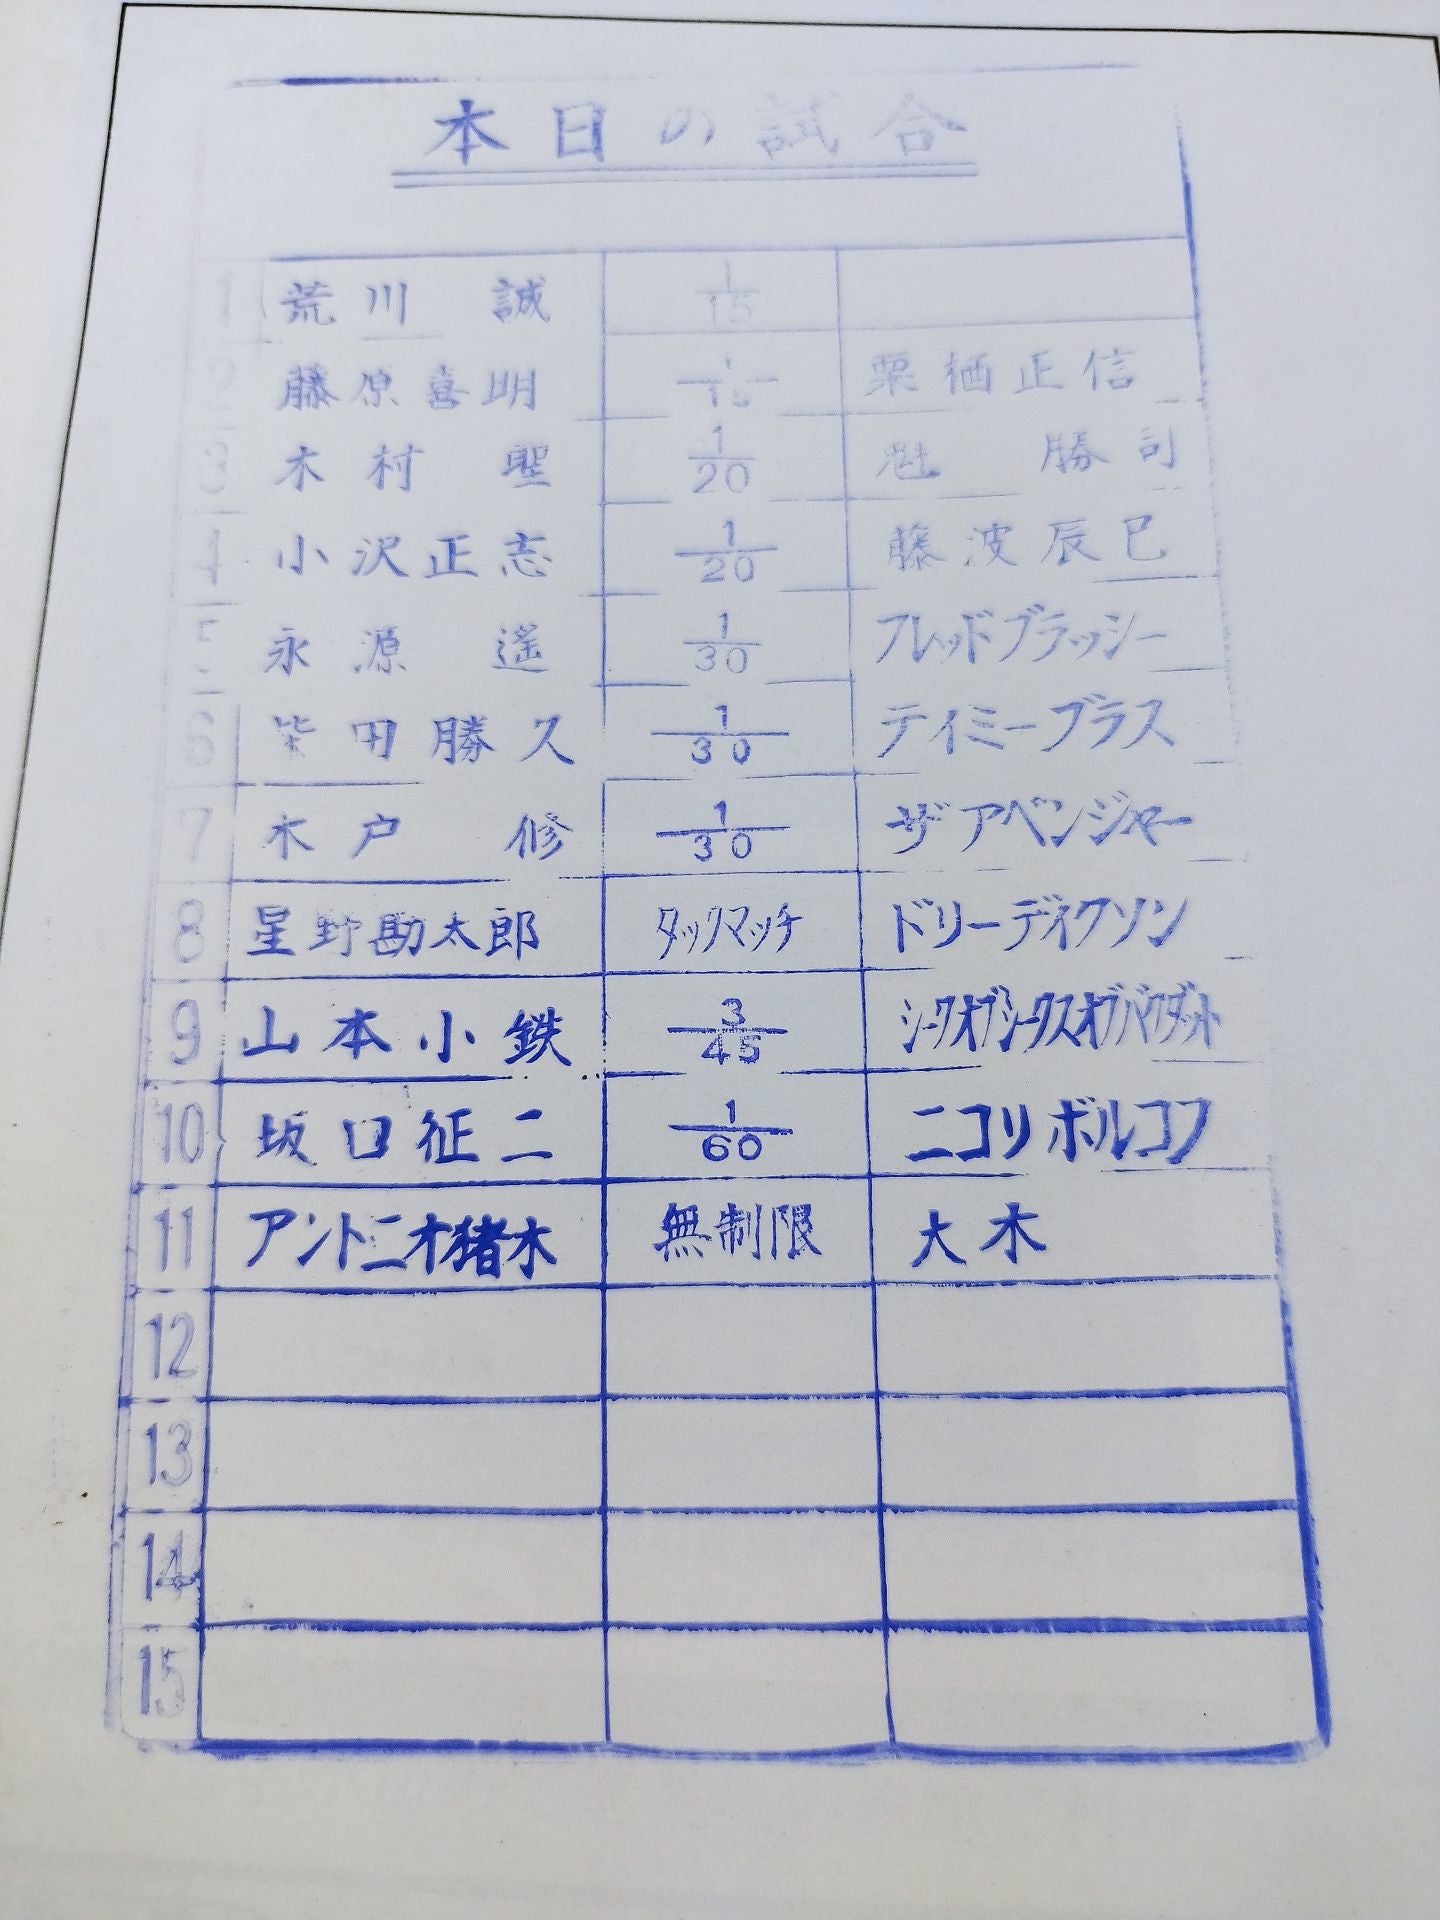 本日の試合
1 荒川 誠 1/15
2 藤原喜明 1/15 栗栖正信
3 木村 聖 1/20 魁 勝司
4 小沢正志 1/20 藤波辰巳
5 永源 遙 1/30 フレッドブラッシー
6 柴田勝久 1/30 ティミーブラス
7 木戸 修 1/30 ザアベンジャー
8 星野勘太郎 タックマッチ ドリーディクソン
9 山本小鉄 3/45 シークオブシークスオブバクダット
10 坂口征二 1/60 ニコリボルコフ
11 アントニオ猪木 無制限 大木
12
13
14
15